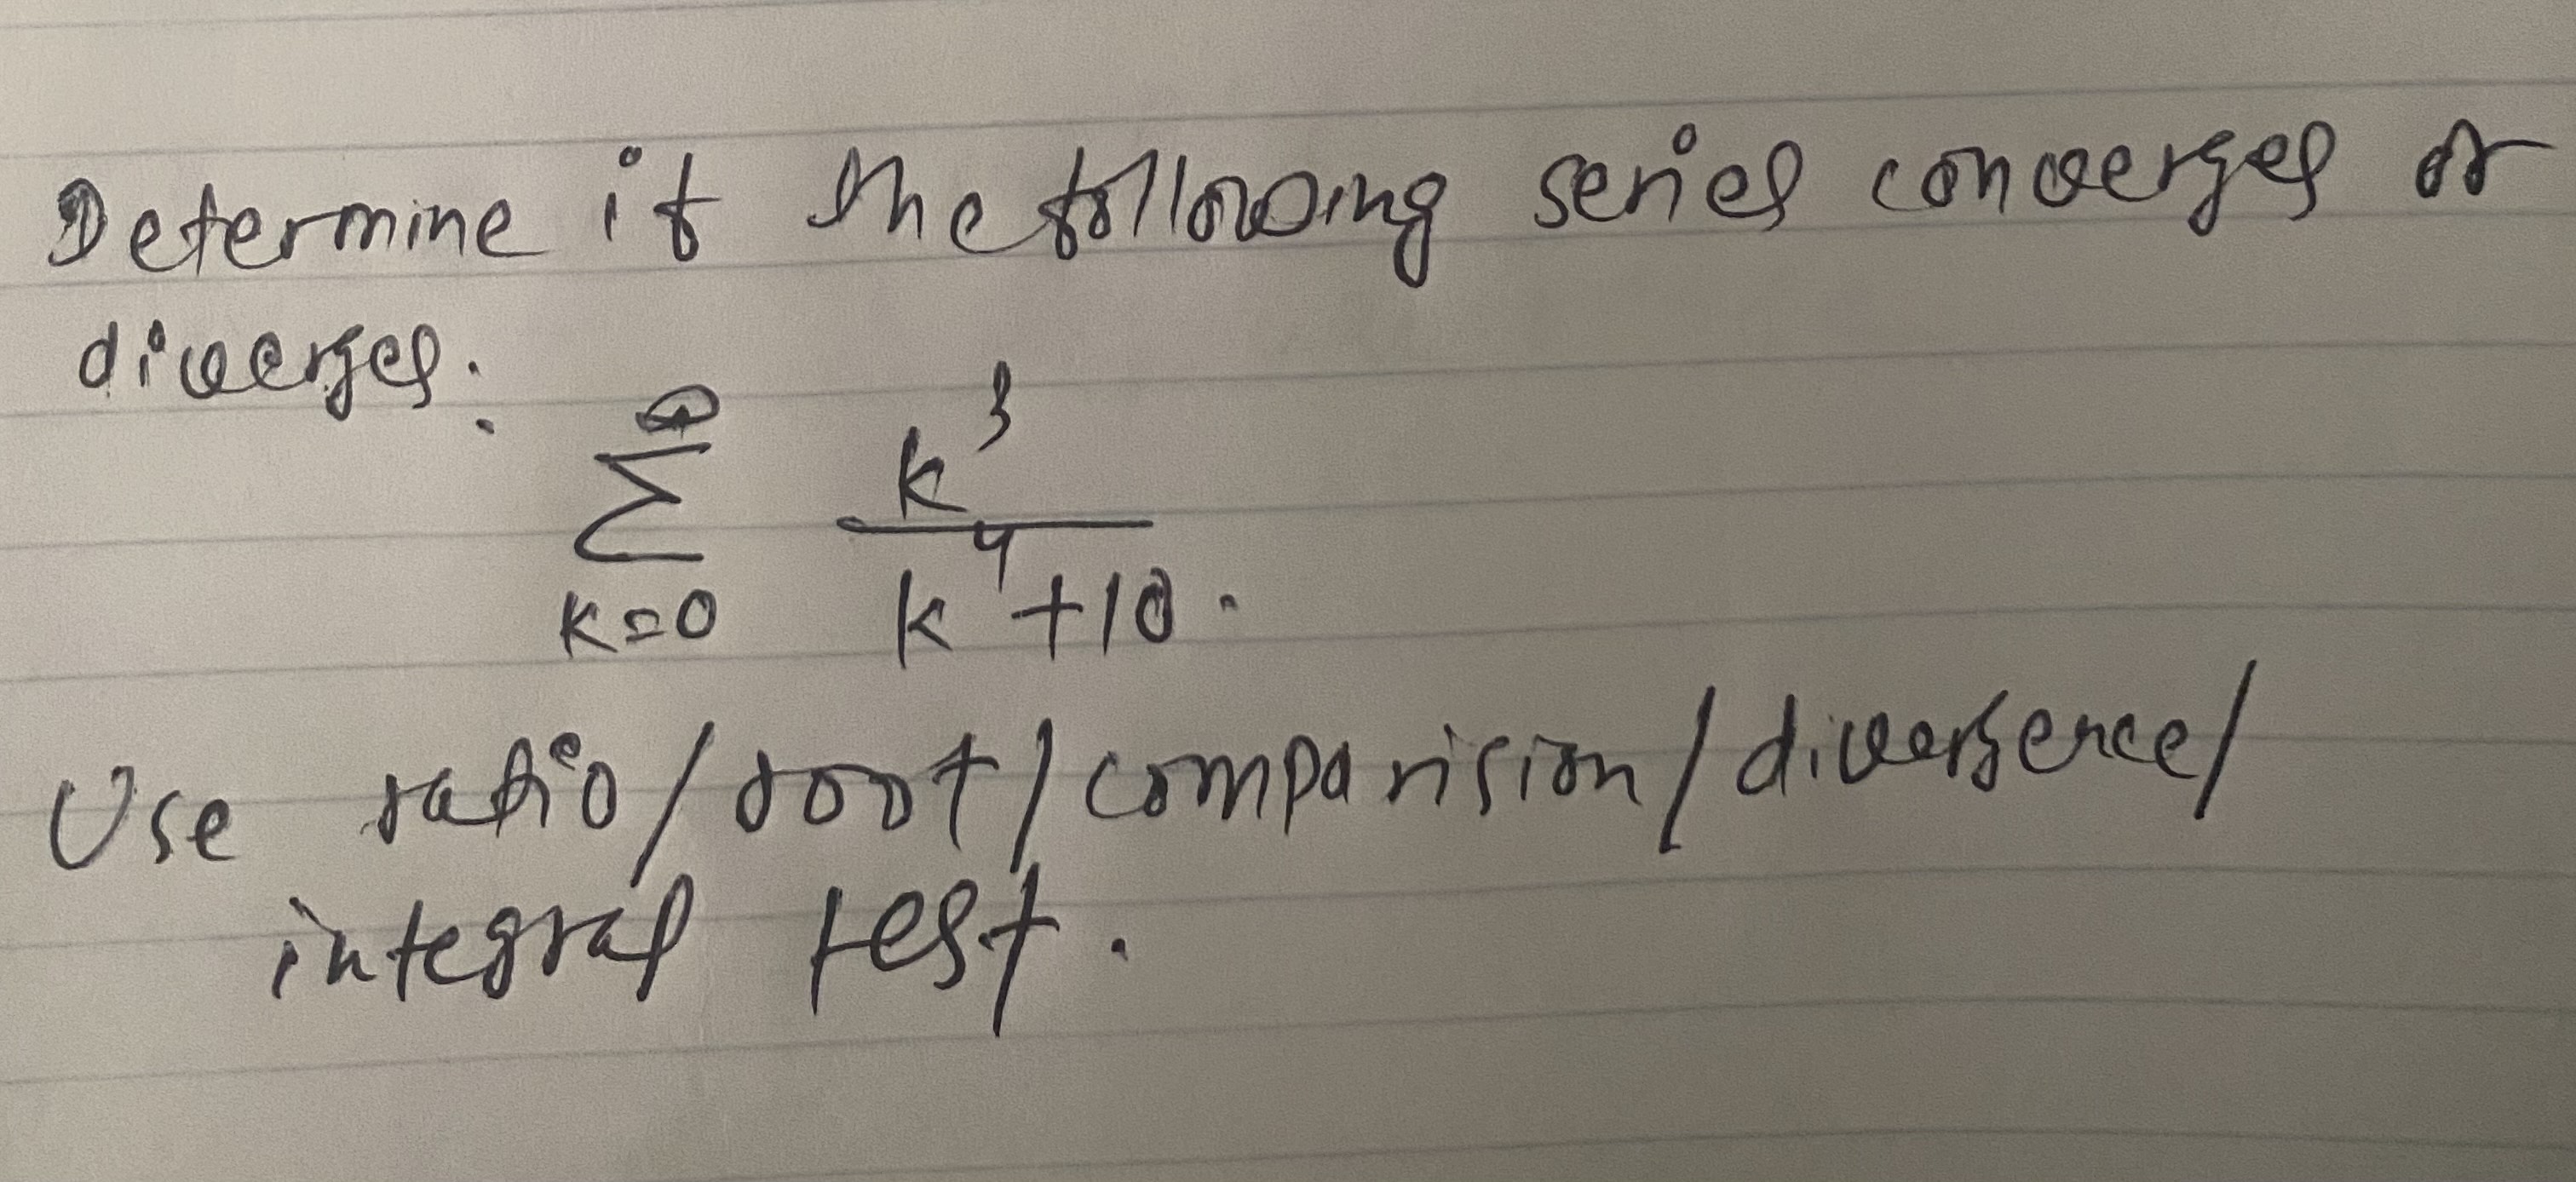 Determine if the following series converges or
diverges:
∞
∑ k³/(k⁴+10).
k=0
Use ratio/root/comparision/divergence/
integral test.